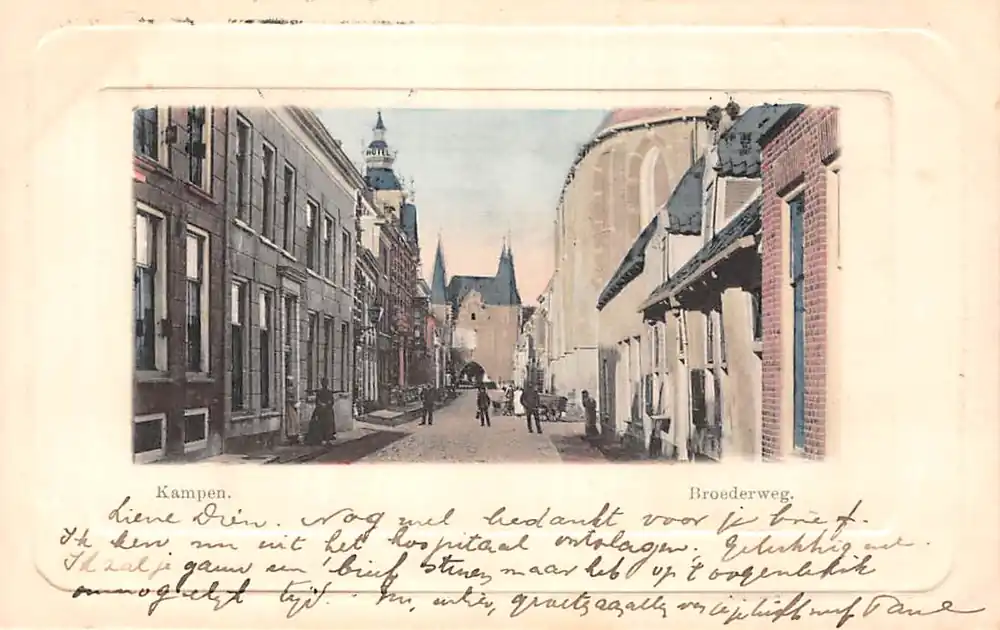 HOTEL
Kampen. Broederweg.
Lieve Dien. Nog wel bedankt voor je brief.
Ik ben nu uit het hospitaal ontslagen. Gelukkig
Ik zal je gauw een brief sturen, maar heb op't oogenblik
onmogelijk tijd. Nu,